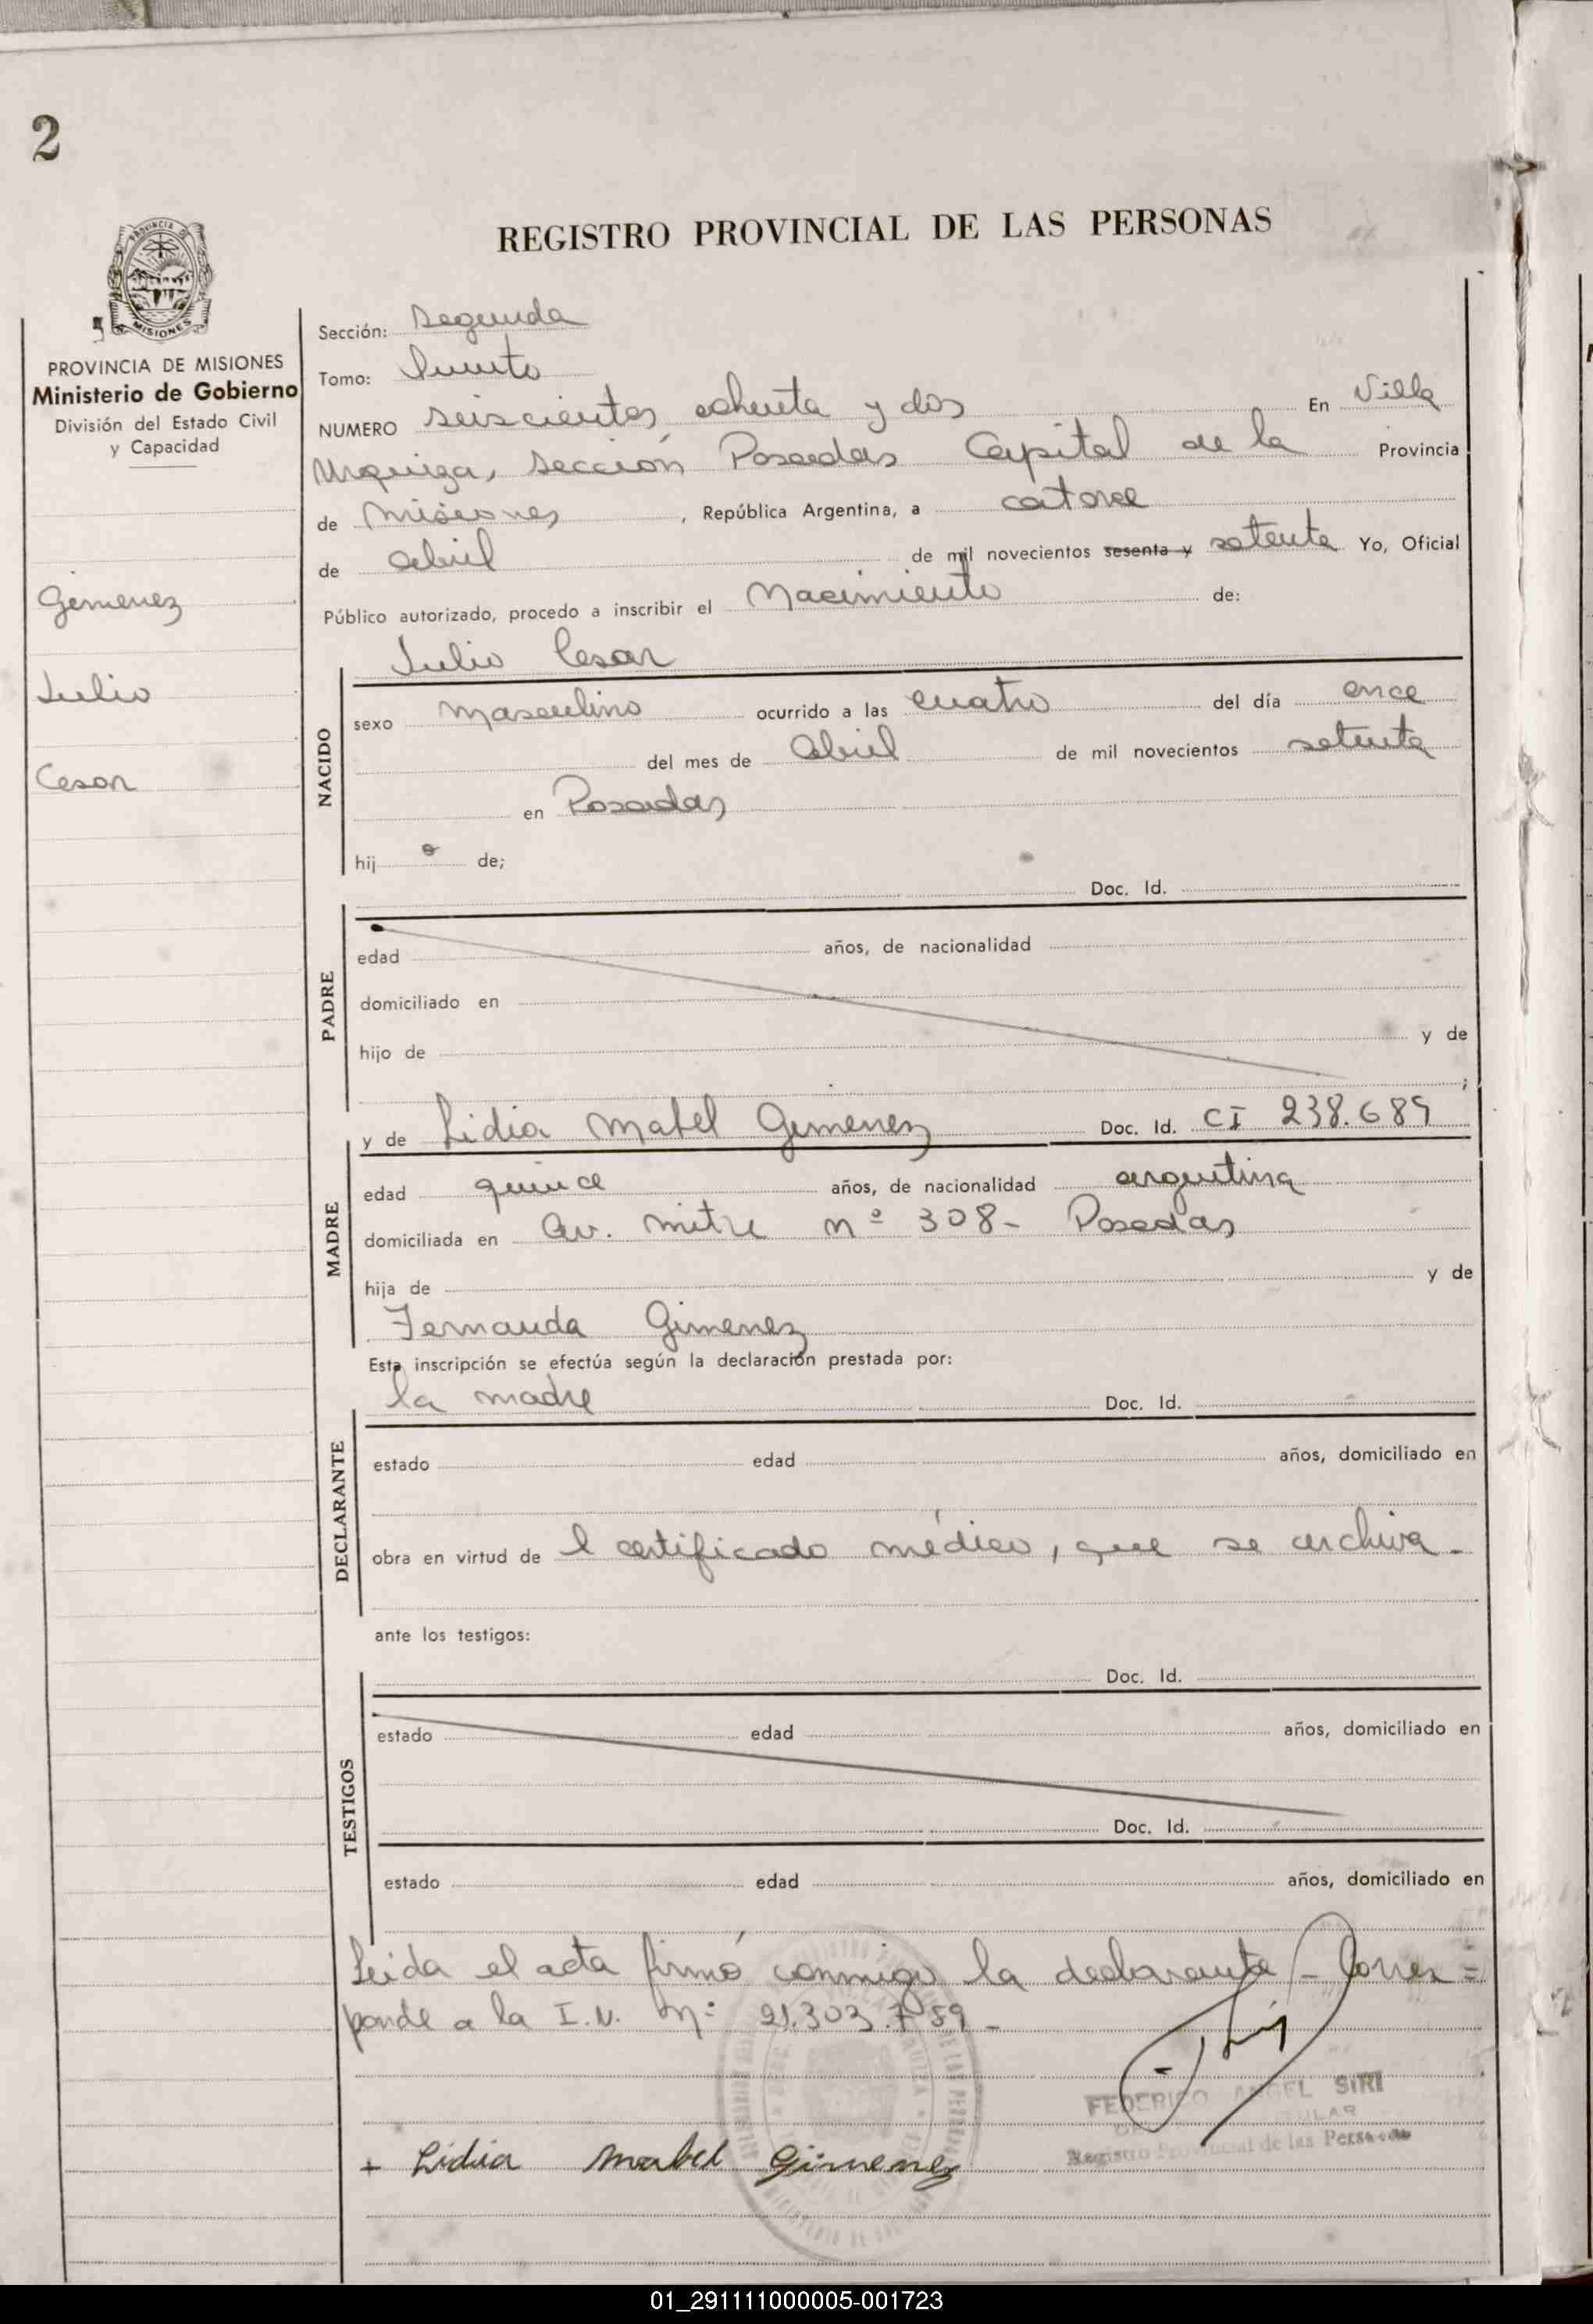 2
REGISTRO PROVINCIAL DE LAS PERSONAS
PROVINCIA DE MISIONES
Ministerio de Gobierno
División del Estado Civil
y Capacidad
Gimenez
Julio
Cesar
Sección: Segunda
Tomo:
NUMERO seiscientos ochenta y dos En Villa
Urquiza, Sección Posadas Capital de la Provincia
de Misiones, República Argentina, a catorce
de abril de mil novecientos sesenta y setenta Yo, Oficial
Público autorizado, procedo a inscribir el Nacimiento de:
Julio Cesar
NACIDO
sexo masculino ocurrido a las cuatro del día once
del mes de Abril de mil novecientos setenta
en Posadas
hij o de;
Doc. Id.
PADRE
edad años, de nacionalidad
domiciliado en
hijo de y de
;
y de Lidia Mabel Gimenez Doc. Id. CI 238.689
MADRE
edad quince años, de nacionalidad argentina
domiciliada en Av. Mitre nº 308- Posadas
hija de y de
Fernanda Gimenez
Esta inscripción se efectúa según la declaración prestada por:
la madre Doc. Id.
DECLARANTE
estado edad años, domiciliado en
obra en virtud de l certificado médico, que se archiva.
ante los testigos:
Doc. Id.
TESTIGOS
estado edad años, domiciliado en
Doc. Id.
estado edad años, domiciliado en
Leida el acta firmó conmigo la declarante - Corres=
ponde a la I.N. Nº 21.303.759-
FEDERICO ANGEL SIRI
Registro Provincial de las Personas
+ Lidia Mabel Gimenez
01_291111000005-001723